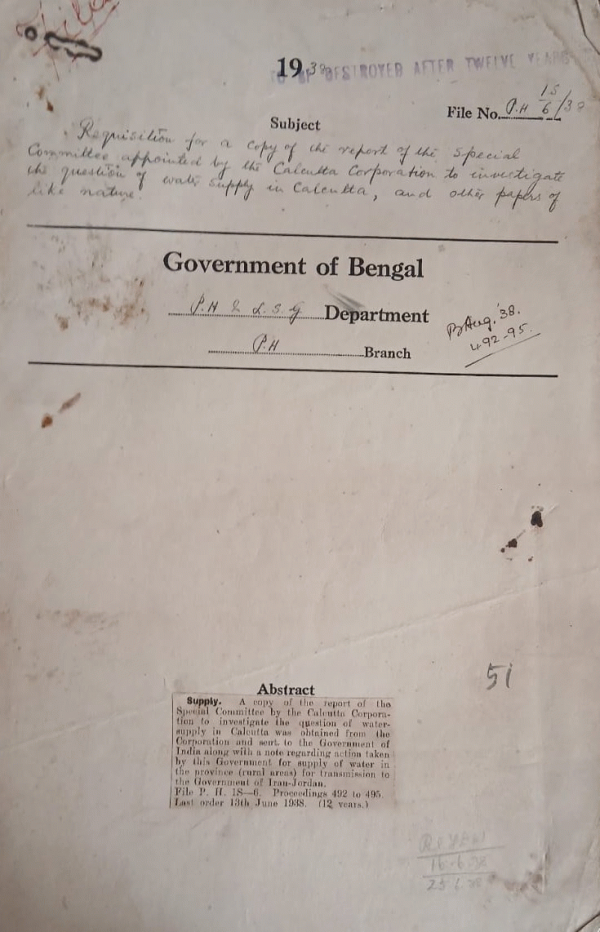 Filed
1938
TO BE DESTROYED AFTER TWELVE YEARS
File No. P.H 1S/6/38
Subject
Requisition for a copy of the report of the special
Committee appointed by the Calcutta Corporation to investigate
the question of water supply in Calcutta, and other papers of
like nature.
Government of Bengal
P.H & L.S.G Department
P.H Branch
Aug. '38.
492-95.
51
Abstract
Supply. A copy of the report of the
Special Committee by the Calcutta Corpora-
tion to investigate the question of water-
supply in Calcutta was obtained from the
Corporation and sent to the Government of
India along with a note regarding action taken
by this Government for supply of water in
the province (rural areas) for transmission to
the Government of Iran-Jordan.
File P. H. 1S—6. Proceedings 492 to 495.
Last order 13th June 1938. (12 years.)